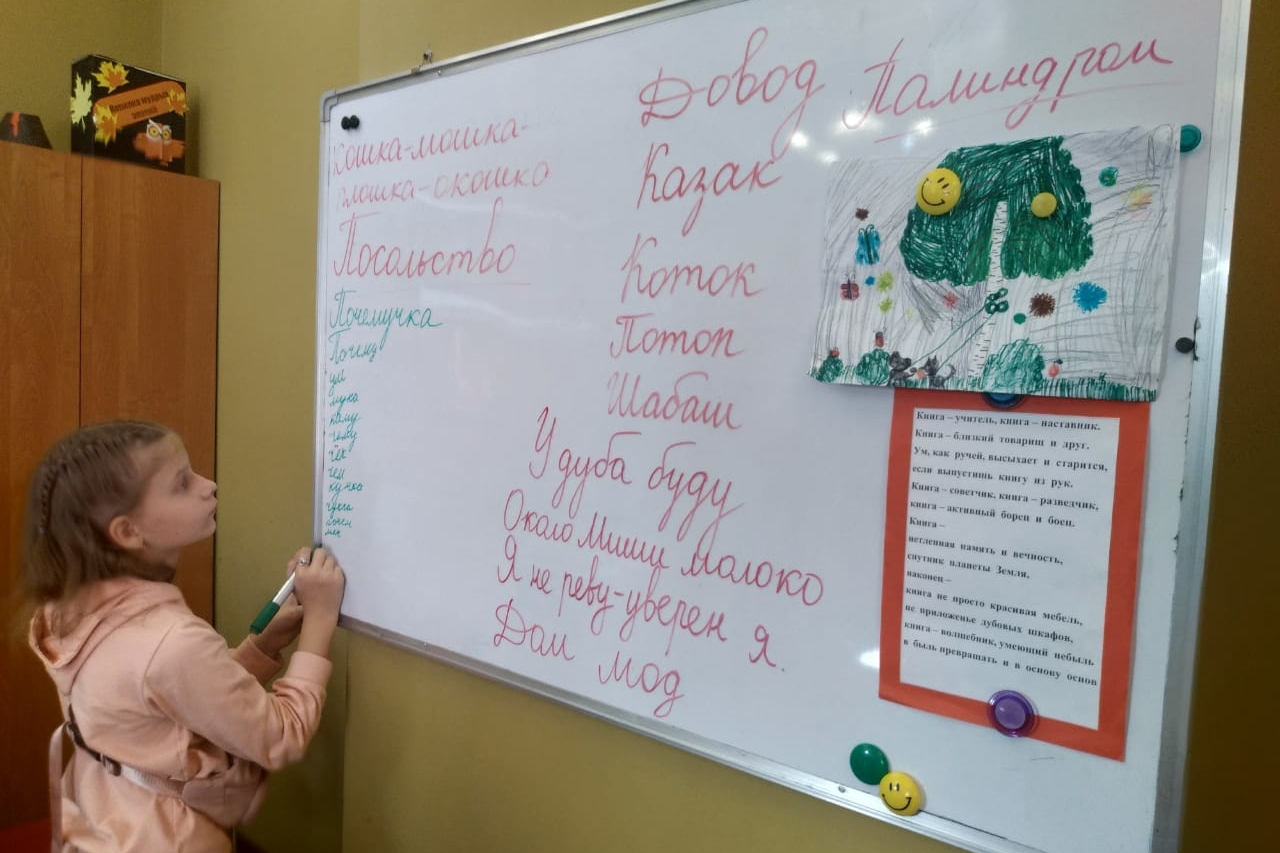 Копилка мудрых
мыслей
Кошка-мошка-
плошка-окошко
Посольство
Почемучка
Почему
ум
мука
кому
чему
чех
чем
кучка
мех
Довод
Палиндром
Казак
Коток
Потоп
Шабаш
У дуба буду
Около Миши молоко
Я не реву-уверен я.
Дом мод
Книга – учитель, книга – наставник.
Книга – близкий товарищ и друг.
Ум, как ручей, высыхает и старится,
если выпустишь книгу из рук.
Книга – советчик, книга – разведчик,
книга – активный борец и боец.
Книга –
нетленная память и вечность,
спутник планеты Земля,
наконец –
книга не просто красивая мебель,
не приложенье дубовых шкафов,
книга – волшебник, умеющий небыль
в быль превращать и в основу основ